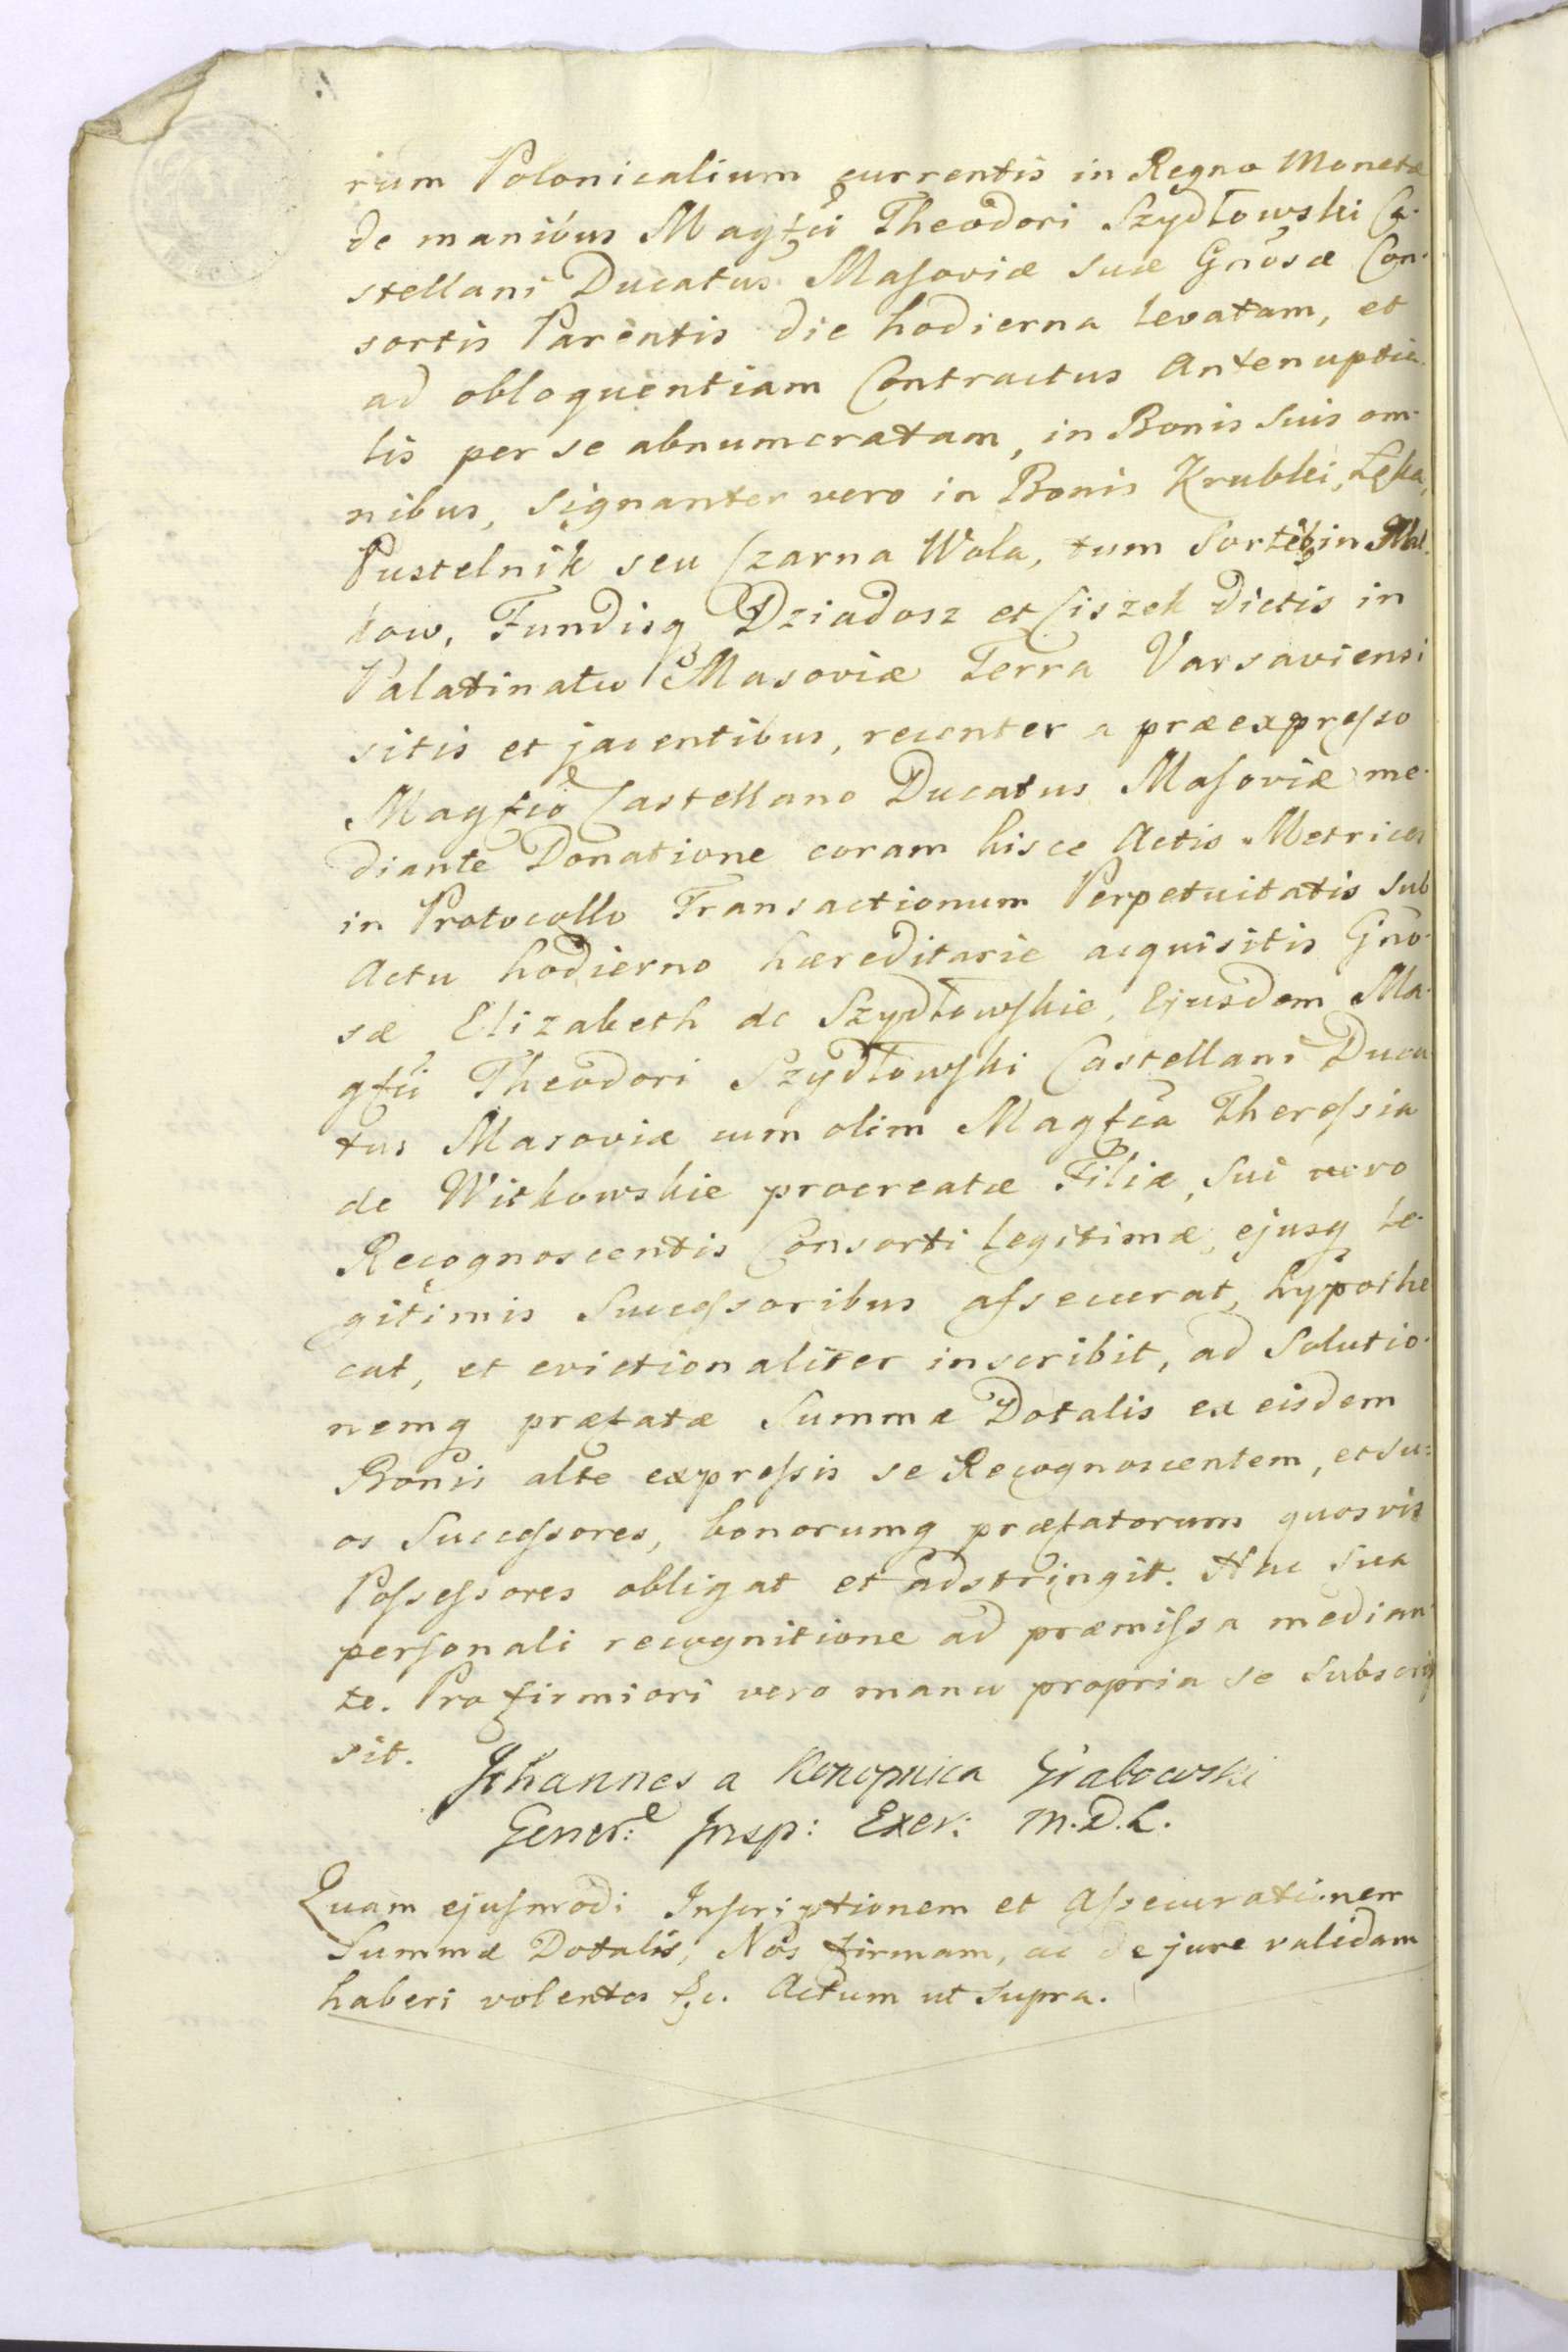 rum Polonicalium currentis in Regno Monetæ
de manibus Magfci Theodori Szydłowski Ca-
stellani Ducatus Masoviæ suæ Gnosæ Con-
sortis Parentis die hodierna levatam, et
ad obloquentiam Contractus Antenuptia-
lis per se abnumeratam, in Bonis suis om-
nibus, signanter vero in Bonis Krubki, Łęka,
Pustelnik seu Czarna Wola, tum Sortibq in
kow, Fundisq Dziadosz et Ciszek dictis in
Palatinatu Masoviæ Terra Varsaviensi
sitis et jacentibus, recenter a præexpresso
Magfco Castellano Ducatus Masoviæ me-
diante Donatione coram hisce Actis Metrices
in Protocollo Transactionum Perpetuitatis sub
Actu hodierno hæreditarie acquisitis Gno-
sæ Elizabeth de Szydłowskie, Ejusdem Ma-
gfci Theodori Szydłowski Castellani Duca-
tus Masoviæ cum olim Magfca Theressia
de Witkowskie procreatæ Filiæ, sui vero
Recognoscentis Consorti legitimæ, ejusq le-
gitimis Successoribus assecurat, hypothe
cat, et evictionaliter inscribit, ad Solutio-
nemq præfatæ Summæ Dotalis ex eisdem
Bonis alte expressis se Recognoscentem, et su=
os Successores, bonorumq præfatorum quosvis
Possessores obligat et adstringit. Hac sua
personali recognitione ad præmissa median-
te. Pro firmiori vero manu propria se subscrip
sit.
Johannes a Konopnica Grabowski
Gener:e Insp: Exer: M.D.L.
Quam ejusmodi Inscriptionem et Assecurationem
Summæ Dotalis, Nos firmam, ac de jure validam
haberi volentes &c. Actum ut supra.